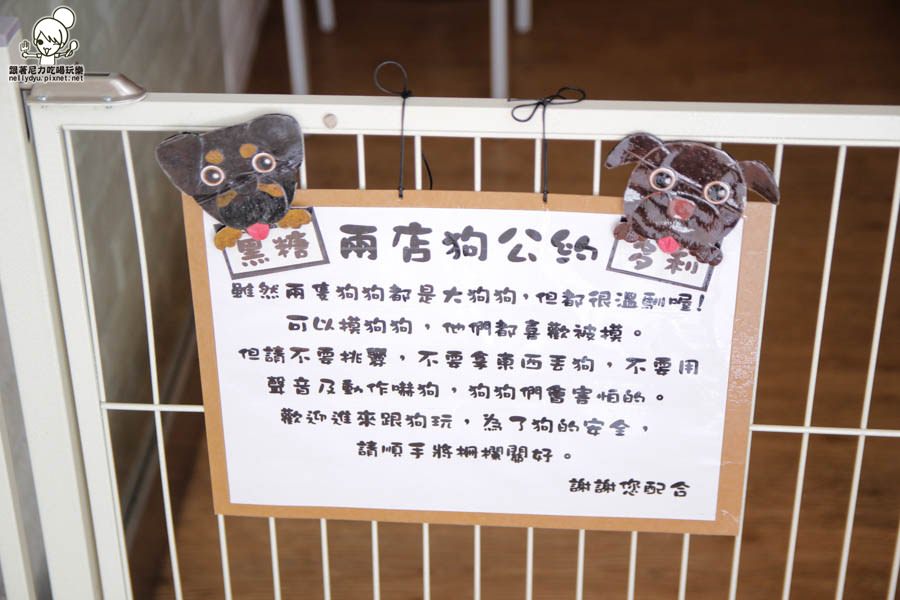 跟著尼力吃喝玩樂
nellydyu.pixnet.net
黑糖
兩店狗公約
多利
雖然兩隻狗狗都是大狗狗,但都很溫馴喔!
可以摸狗狗,他們都喜歡被摸。
但請不要挑釁,不要拿東西丟狗,不要用
聲音及動作嚇狗,狗狗們會害怕的。
歡迎進來跟狗玩,為了狗的安全,
請順手將柵欄關好。
謝謝您配合